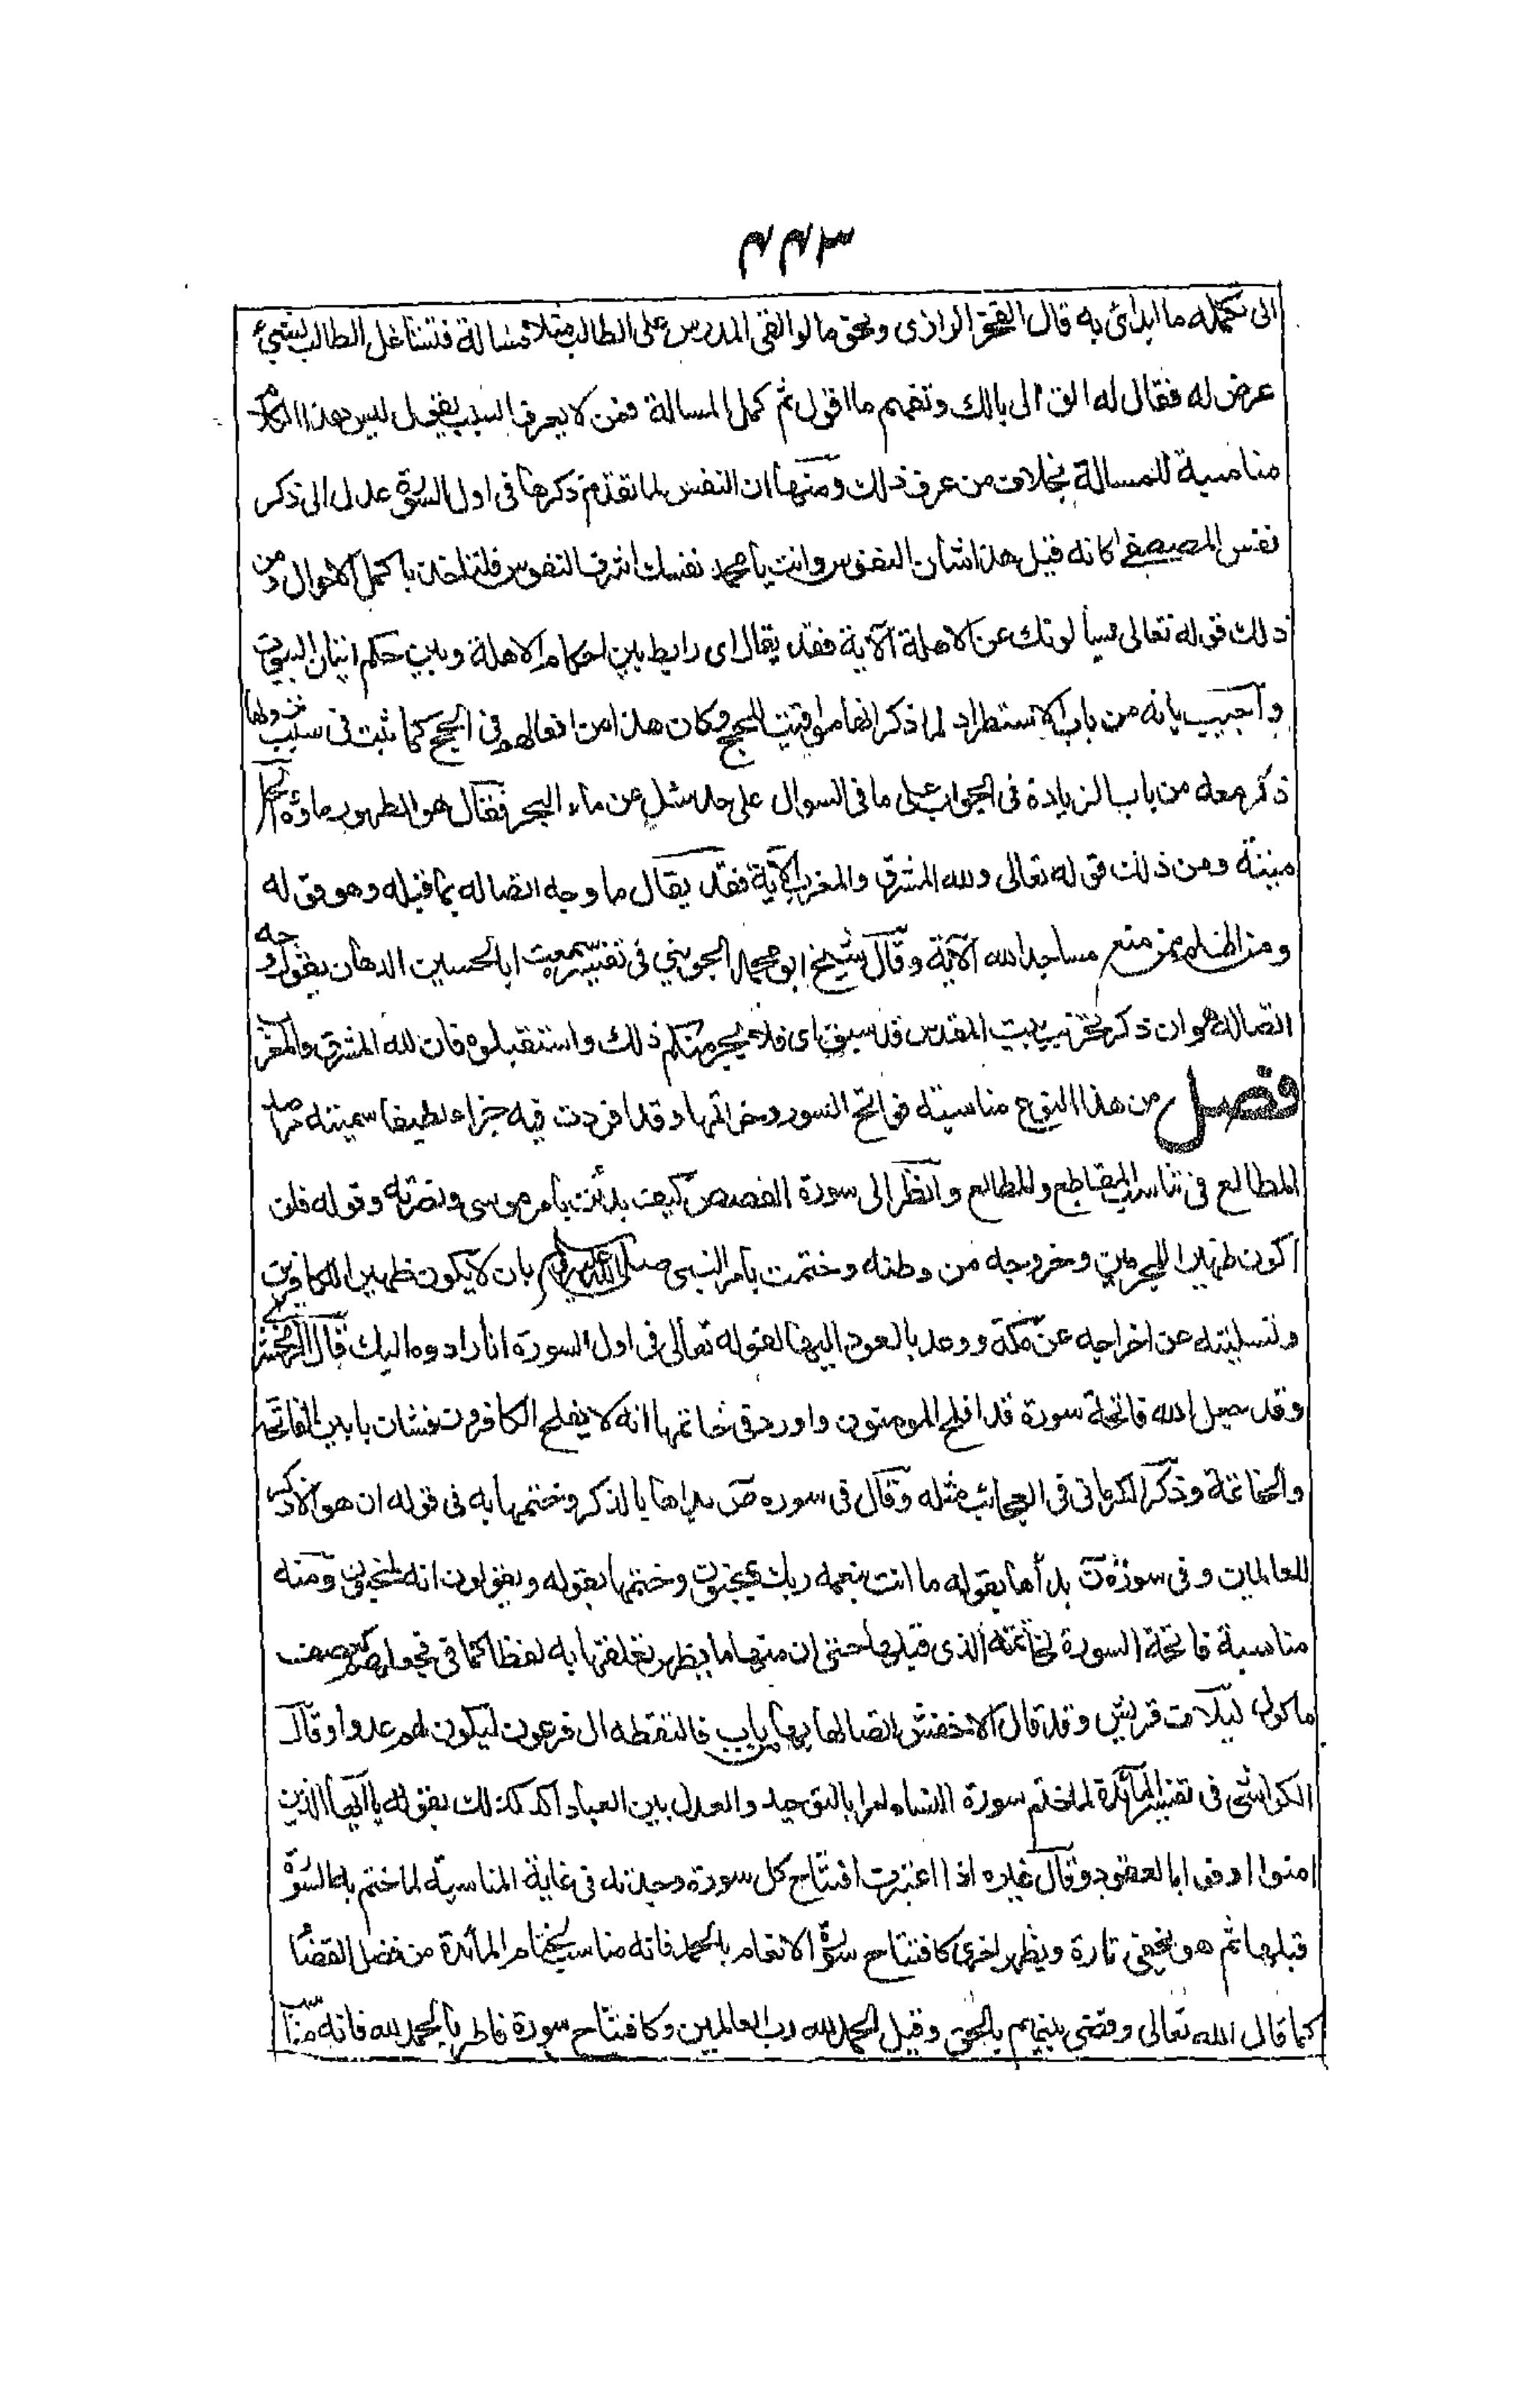 ٤٤٣
الى تكمله ما ابدائ به قال الفخر الرازى ونحو ما لو القى المدرس على الطالب مثلا مسالة فتشاغل الطالب بشيئ
عرض له فقال له الق الى بالك وتفهم ما اقول ثم كمل المسالة فمن لا يعرف السبب يقول ليس هذا الكلام
مناسبة للمسالة بخلاف من عرف ذلك ومنها ان النفس لما تقدم ذكرها فى اول السورة عدل الى ذكر
نفس المصطفى كانه قيل هذا شان النفوس وانت يا محمد نفسك اشرف النفوس فلتاخذ باكمل الاحوال ومن
ذلك قوله تعالى يسألونك عن الاهلة الآية فقد يقال اى رابط بين احكام الاهلة وبين حكم اتيان البيوت
وأجيب بانه من باب الاستطراد لما ذكر انها مواقيت للحج وكان هذا من افعالهم فى الحج كما ثبت فى سبب نزولها
ذكر معه من باب الزيادة فى الجواب على ما فى السوال على حد سئل عن ماء البحر فقال هو الطهور ماؤه الحل
ميتته ومن ذلك قوله تعالى ولله المشرق والمغرب الآية فقد يقال ما وجه اتصاله بما قبله وهو قوله
ومن اظلم ممن منع مساجد الله الآية وقال شيخ ابو محمد الجوينى فى تفسيره سمعت ابا الحسين الدهان يقول وجه
اتصاله هو ان ذكر تخريب بيت المقدس قد سبق اى فلا يجرمنكم ذلك واستقبلوه فان لله المشرق والمغرب
فصل من هذا النوع مناسبة فواتح السور وخواتمها وقد افردت فيه جزاء لطيفا سميته مراصد
المطالع فى تناسب المقاطع والمطالع وانظر الى سورة القصص كيف بدئت بامر موسى ونصرته وقوله فلن
اكون ظهيرا للمجرمين وخروجه من وطنه وختمت بامر النبى صلى الله عليه وسلم بان لا يكون ظهيرا للكافرين
وتسليته عن اخراجه عن مكة ووعد بالعود اليها لقوله تعالى فى اول السورة انا رادوه اليك قال الزمخشرى
وقد جعل الله فاتحة سورة قد افلح المومنون واورد فى خاتمتها انه لا يفلح الكافرون فشتان ما بين الفاتحة
والخاتمة وذكر الكرمانى فى العجائب مثله وقال فى سوره ص بدأها بالذكر وختمها به فى قوله ان هو الا ذكر
للعالمين وفى سورة ن بدأها بقوله ما انت بنعمه ربك بمجنون وختمها بقوله ويقولون انه لمجنون ومنه
مناسبة فاتحة السورة لخاتمة الذى قبلها حتى ان منها ما يظهر تعلقها به لفظا كما فى فجعلهم كعصف
ماكول لئلاف قريش وقد قال الاخفش اتصالها بها من باب فالتقطه ال فرعون ليكون لهم عدوا وقال
الكواشى فى تفسير المائدة لما ختم سورة النساء امرا بالتوحيد والعدل بين العباد اكد ذلك بقوله يا ايها الذين
امنوا اوفوا بالعقود وقال غيره اذا اعتبرت افتتاح كل سورة وجدته فى غاية المناسبة لما ختم به السورة
قبلها ثم هو يخفى تارة ويظهر اخرى كافتتاح سورة الانعام بالحمد فانه مناسب لختام المائدة من فصل القضاء
كما قال الله تعالى وقضى بينهم بالحق وقيل الحمد لله رب العالمين وكافتتاح سورة فاطر بالحمد لله فانه مناسب